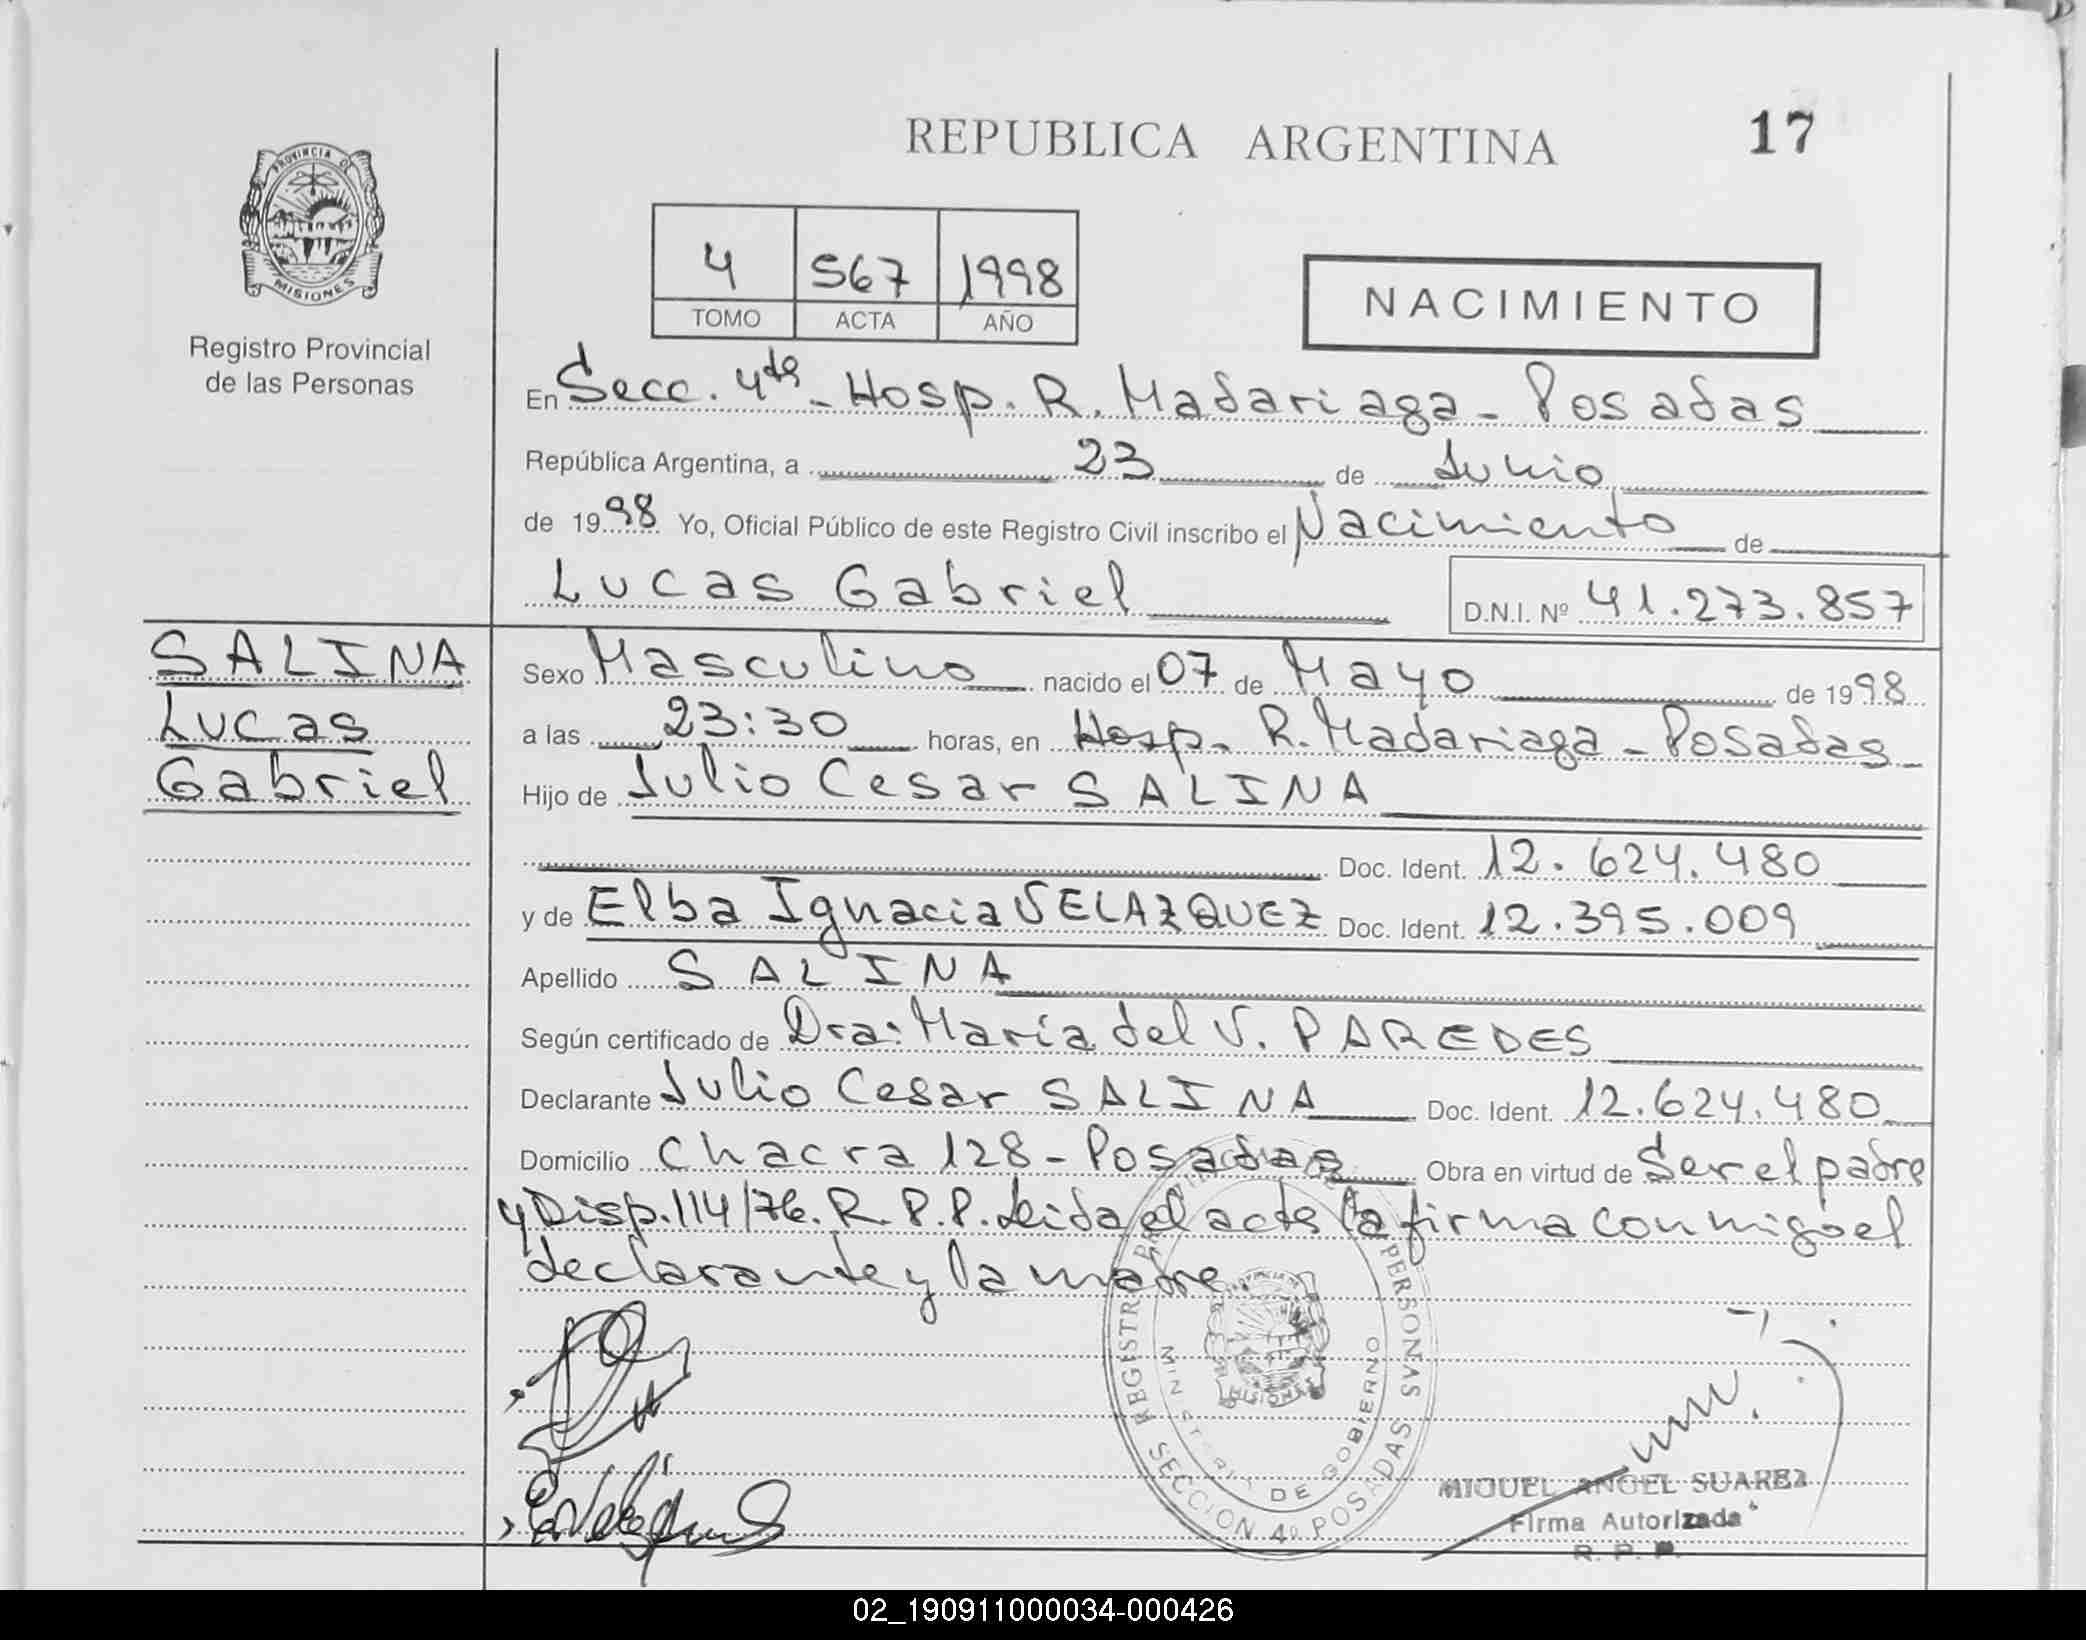 REPUBLICA ARGENTINA 17
PROVINCIA DE
MISIONES
Registro Provincial
de las Personas
4 567 1998
TOMO ACTA AÑO
NACIMIENTO
En Secc. 4ta - Hosp. R. Madariaga - Posadas
República Argentina, a 23 de Junio
de 1998 Yo, Oficial Público de este Registro Civil inscribo el Nacimiento de
Lucas Gabriel D.N.I. Nº 41.273.857
SALINA
Lucas
Gabriel
Sexo Masculino nacido el 07 de Mayo de 1998
a las 23:30 horas, en Hosp. R. Madariaga - Posadas
Hijo de Julio Cesar SALINA
Doc. Ident. 12.624.480
y de Elba Ignacia VELAZQUEZ Doc. Ident. 12.395.009
Apellido SALINA
Según certificado de Dra: María del V. PAREDES
Declarante Julio Cesar SALINA Doc. Ident. 12.624.480
Domicilio Chacra 128 - Posadas Obra en virtud de Ser el padre
y Disp. 114/76. R. P. P. Leida el acta la firma conmigo el
declarante y la madre.
REGISTRO PERSONAS
MINISTERIO DE GOBIERNO
SECCION 4º POSADAS
MISIONES
MIGUEL ANGEL SUAREZ
Firma Autorizada
R. P. P.
02_190911000034-000426